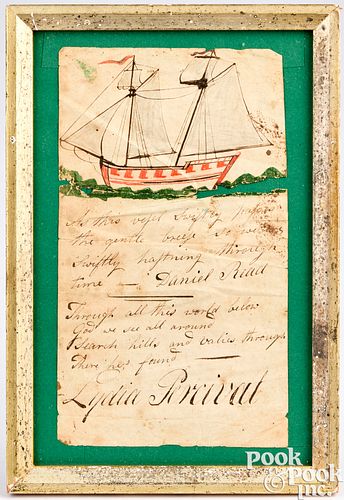 As this vessel Swiftly passes
the gentle breeze So we
Swiftly hastning through
time — Daniel Read
Through all this world below
God we see all around
Search hills and valies through
There hes found
Lydia Percival
POOK
&POOK
INC.